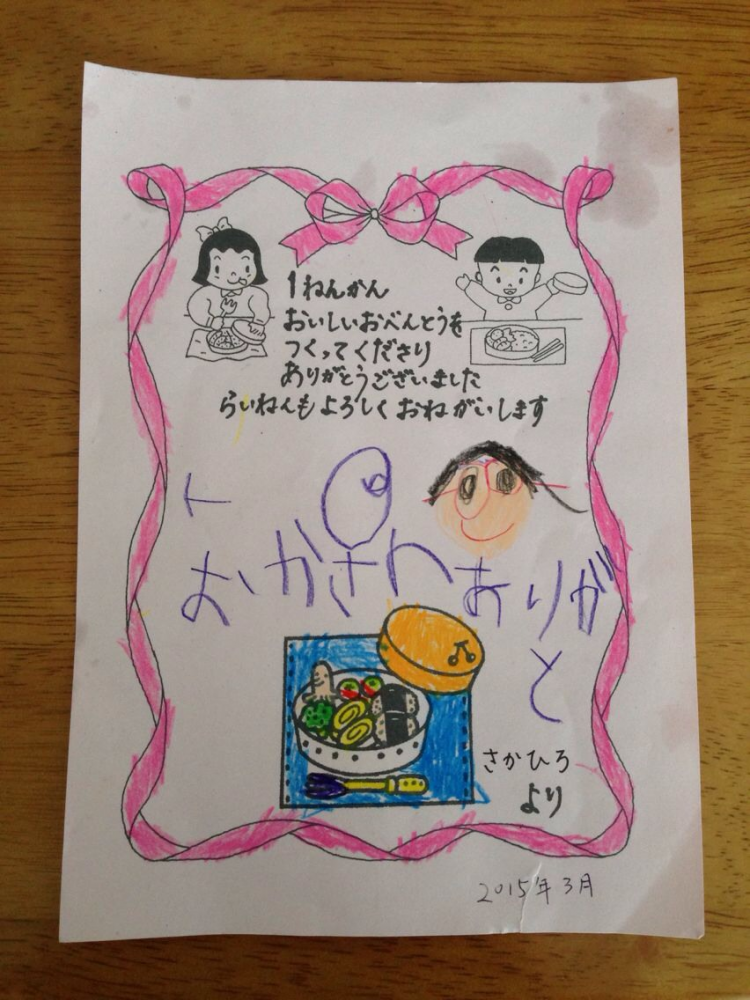 1ねんかん
おいしいおべんとうを
つくってくださり
ありがとうございました
らいねんもよろしくおねがいします
おかさんありが
と
さかひろ
より
2015年3月